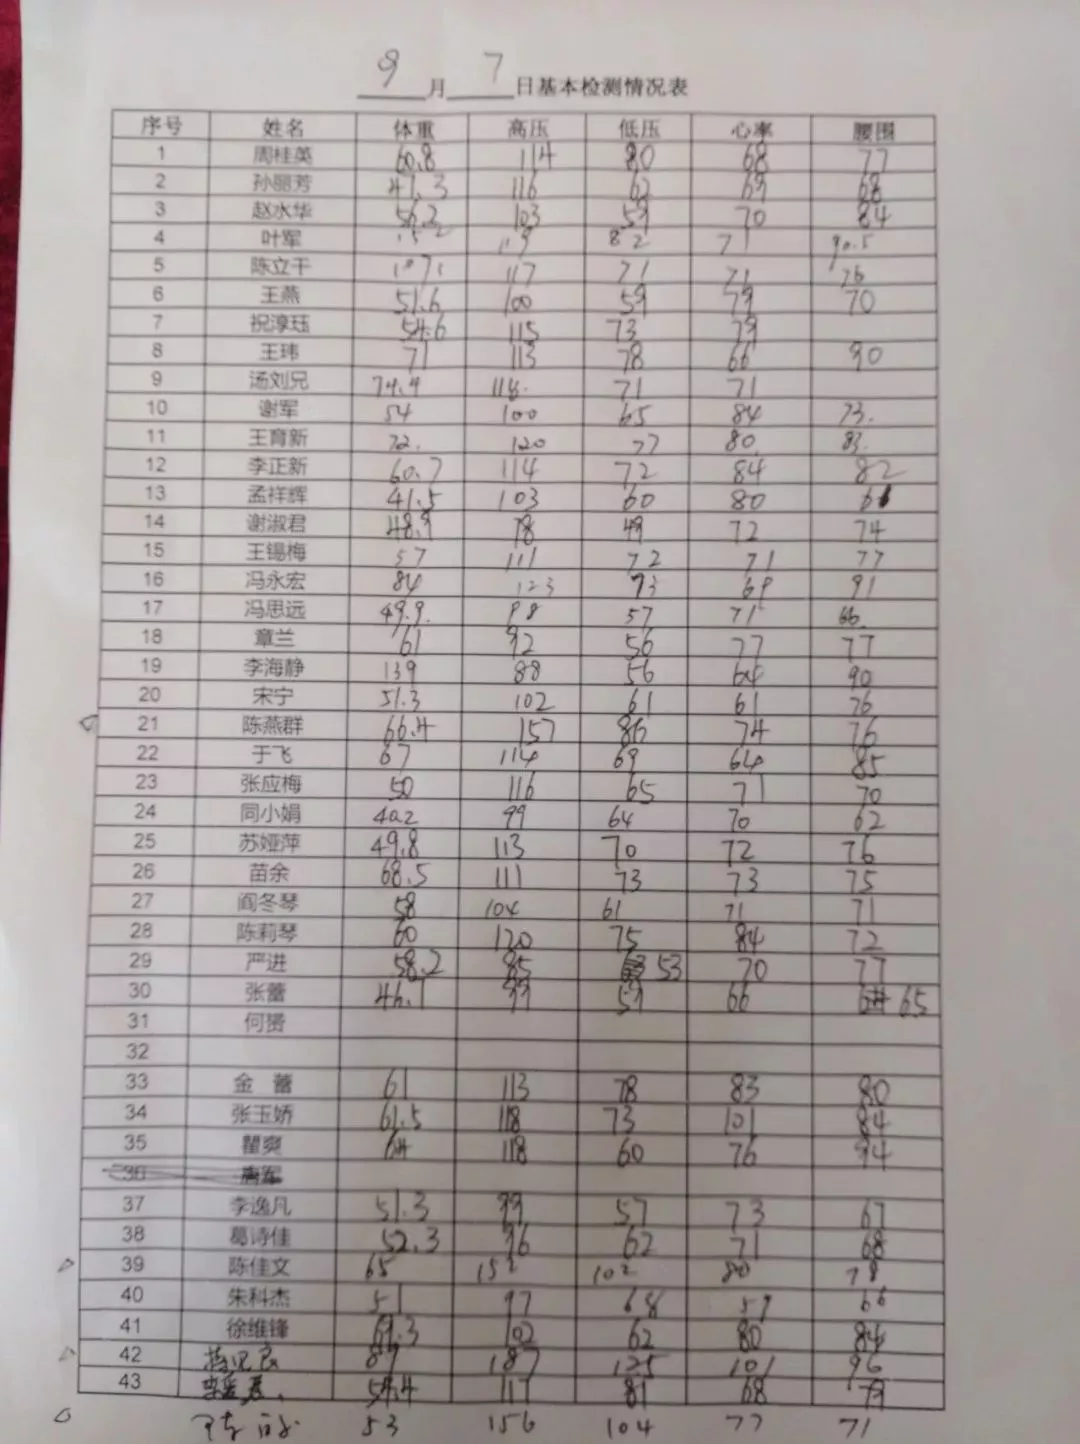 9月7日基本检测情况表
序号 姓名 体重 高压 低压 心率 腰围
1 周桂英 60.8 114 80 68 77
2 孙丽芳 41.3 116 62 69 68
3 赵水华 56.2 103 59 70 84
4 叶军 82 71 90.5
5 陈立干 117 71 71 76
6 王燕 51.6 100 59 79 70
7 祝淳珏 54.6 115 73 79
8 王玮 71 113 78 66 90
9 汤刘兄 74.9 118. 71 71
10 谢军 54 100 65 84 73.
11 王育新 72. 120 77 80 83.
12 李正新 60.7 114 72 84 82
13 孟祥辉 41.5 103 60 80
14 谢淑君 48.9 78 49 72 74
15 王锡梅 57 111 72 71 77
16 冯永宏 84 123 73 69 91
17 冯思远 49.9. 98 57 71 66.
18 章兰 61 92 56 77 77
19 李海静 139 88 56 64 90
20 宋宁 51.3 102 61 61 76
21 陈燕群 66.4 157 86 74 76
22 于飞 67 114 69 64 85
23 张应梅 50 116 65 71 70
24 同小娟 40.2 99 64 70 62
25 苏娅萍 49.8 113 70 72 76
26 苗余 68.5 111 73 73 75
27 阎冬琴 58 104 61 71 71
28 陈莉琴 60 120 75 84 72
29 严进 58.2 85 53 70 77
30 张蕾 46.1 99 59 66 65
31 何赟
32
33 金 蕾 61 113 78 83 80
34 张玉娇 61.5 118 73 101 84
35 瞿爽 64 118 60 76 94
36 唐军
37 李逸凡 51.3 99 57 73 67
38 葛诗佳 52.3 96 62 71 68
39 陈佳文 65 152 102 80 78
40 朱科杰 51 97 68 59 66
41 徐维锋 69.3 102 62 80 84
42 87 187 125 101 96
43 54.4 117 81 68 79
53 156 104 77 71